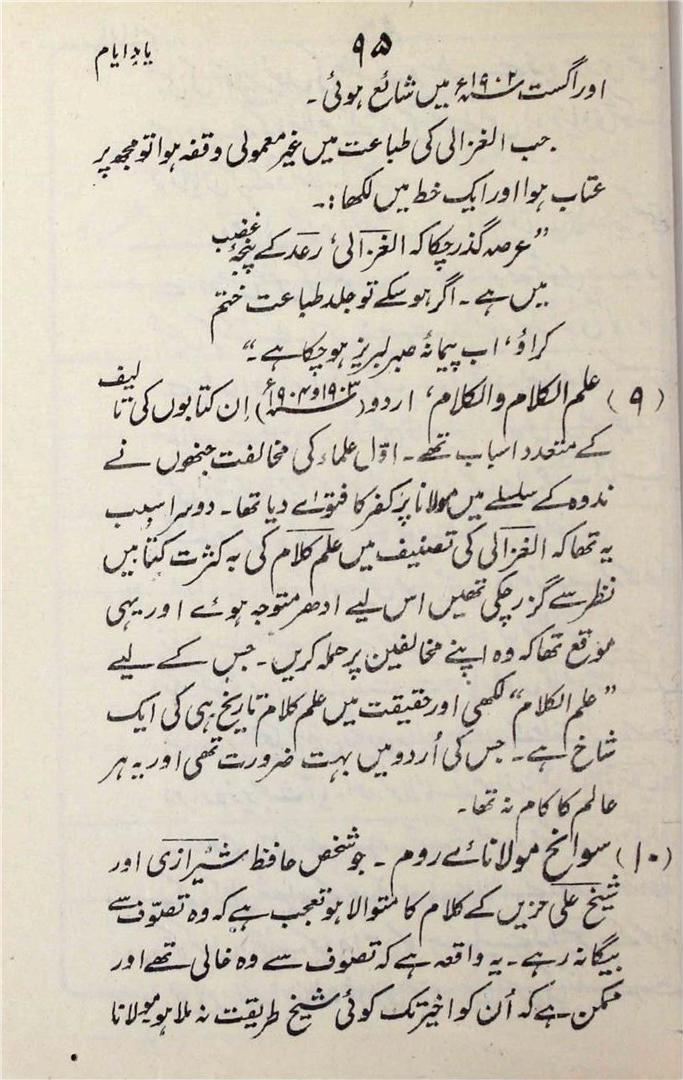 ۹۵
یادِ ایام
اور اگست ۱۹۰۲ء میں شائع ہوئی۔
جب الغزالی کی طباعت میں غیر معمولی وقفہ ہوا تو مجھ پر
عتاب ہوا اور ایک خط میں لکھا:۔
”عرصہ گذر چکا کہ الغزالی، رعد کے پنجۂ غضب
میں ہے۔ اگر ہو سکے تو جلد طباعت ختم
کراؤ، اب پیمانۂ صبر لبریز ہو چکا ہے۔“
(۹) علم الکلام والکلام، اردو (۱۹۰۳ء و ۱۹۰۴ء) اِن کتابوں کی تالیف
کے متعدد اسباب تھے۔ اوّل علماء کی مخالفت جنھوں نے
ندوہ کے سلسلے میں مولانا پر کفر کا فتوےٰ دیا تھا۔ دوسرا سبب
یہ تھا کہ الغزالی کی تصنیف میں علم کلام کی بہ کثرت کتابیں
نظر سے گزر چکی تھیں اس لیے ادھر متوجہ ہوئے اور یہی
موقع تھا کہ وہ اپنے مخالفین پر حملہ کریں۔ جس کے لیے
”علم الکلام“ لکھی اور حقیقت میں علم کلام تاریخ ہی کی ایک
شاخ ہے۔ جس کی اُردو میں بہت ضرورت تھی اور یہ ہر
عالم کا کام نہ تھا۔
(۱۰) سوانح مولانائے روم۔ جو شخص حافظ شیرازی اور
شیخ علی حزیں کے کلام کا متوالا ہو تعجب ہے کہ وہ تصوّف سے
بیگانہ رہے۔ یہ واقعہ ہے کہ تصوف سے وہ خالی تھے اور
ممکن ہے کہ اُن کو اخیر تک کوئی شیخ طریقت نہ ملا ہو مولانا